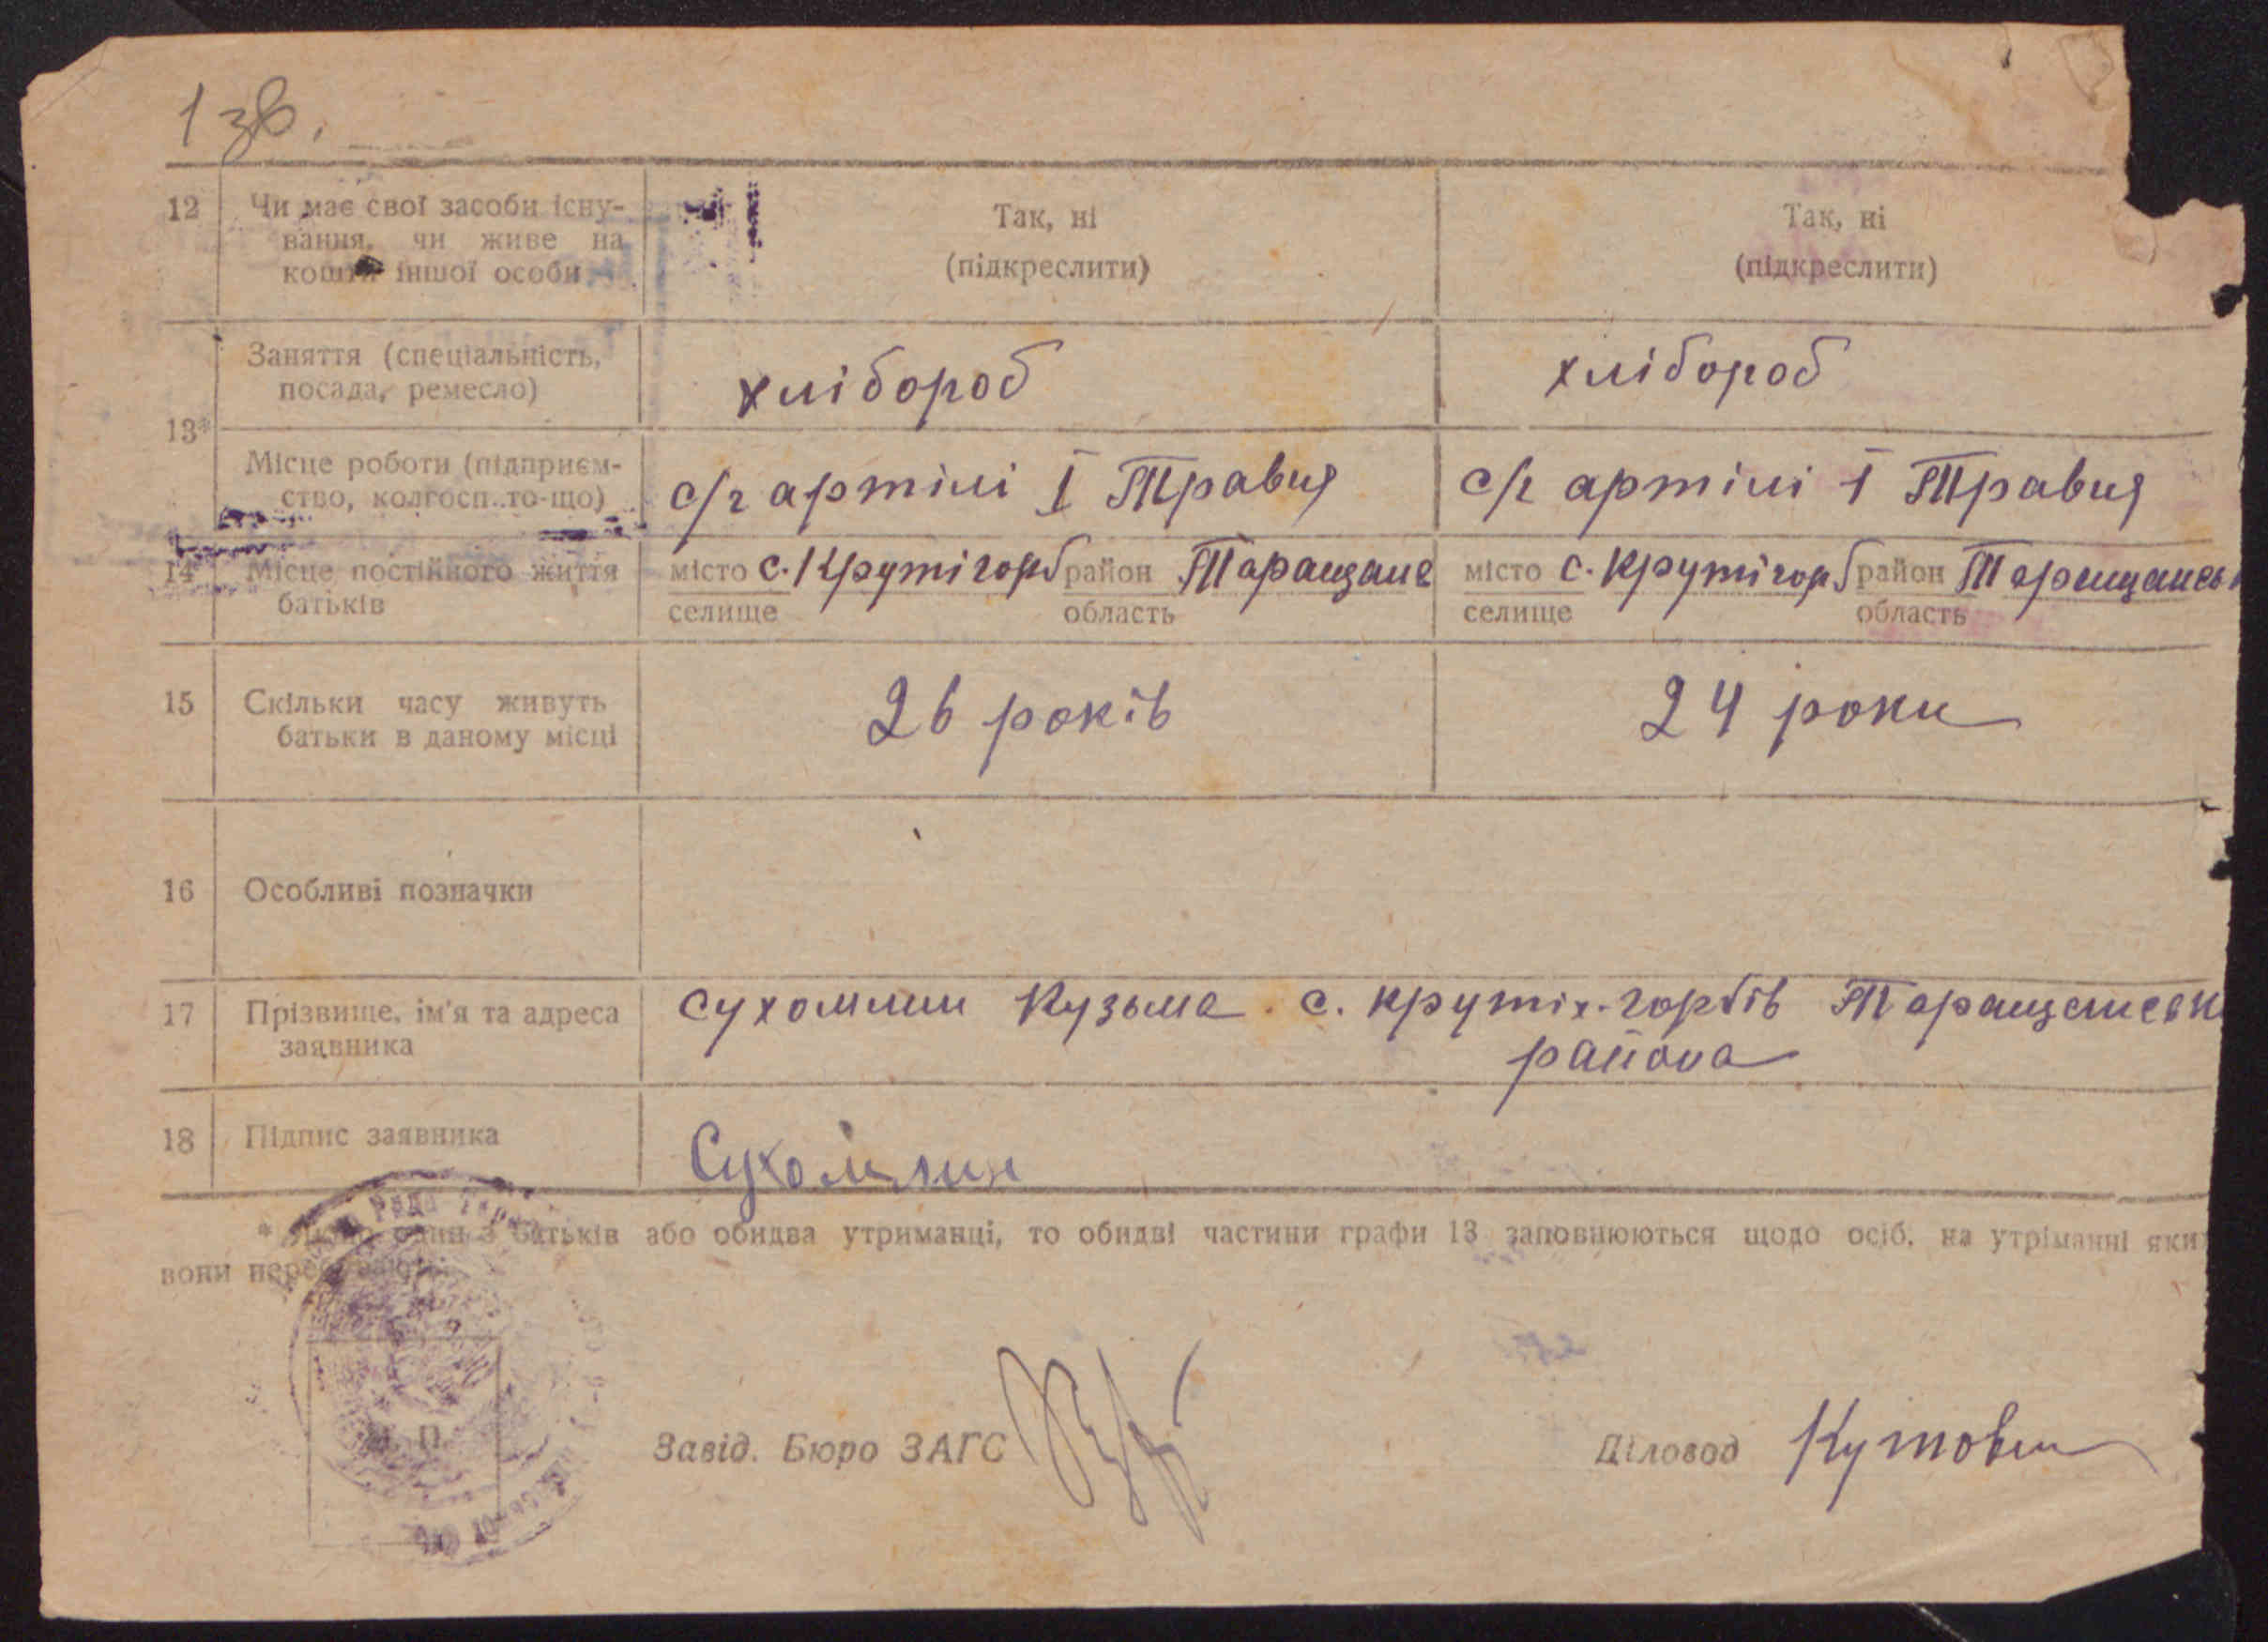 1 зв.
12 Чи має свої засоби існу- Так, ні Так, ні
вання, чи живе на
кошти іншої особи (підкреслити) (підкреслити)
Заняття (спеціальність, хлібороб хлібороб
посада, ремесло)
13*
Місце роботи (підприєм- с/г артілі І Травня с/г артілі 1 Травня
ство, колгосп..то-що)
14 Місце постійного життя місто с. Крутігорб район Таращанс місто с. Крутігорб район Таращансь
батьків селище область селище область
15 Скільки часу живуть 26 років 24 роки
батьки в даному місці
16 Особливі позначки
17 Прізвище, ім'я та адреса Сухомлин Кузьма с. Крутіх-горбів Таращанськ
заявника района
18 Підпис заявника Сухомлин
* Якщо один з батьків або обидва утриманці, то обидві частини графи 13 заповнюються щодо осіб, на утріманні яки
вони перебувають.
Рада
П.
Завід. Бюро ЗАГС Діловод Кутовий